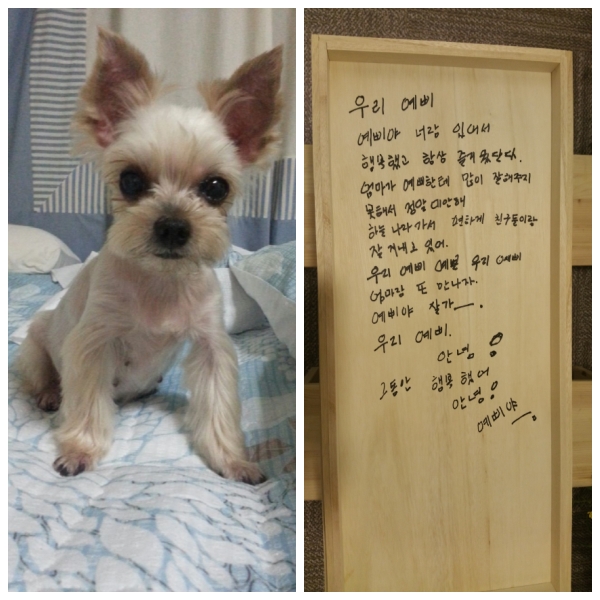 우리 예삐
예삐야 너랑 있어서
행복했고 항상 즐거웠단다.
엄마가 예삐한테 많이 잘해주지
못해서 정말 미안해
하늘 나라 가서 편하게 친구들이랑
잘 지내고 있어.
우리 예삐 예쁜 우리 예삐
엄마랑 또 만나자.
예삐야 잘가—.
우리 예삐.
안녕!
그동안 행복했어
안녕!
예삐야—.